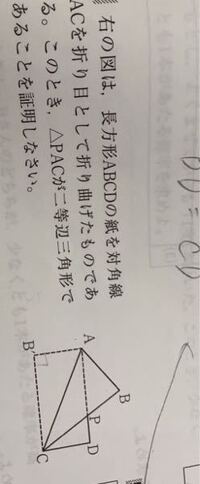 右の図は，長方形ABCDの紙を対角線
ACを折り目として折り曲げたものであ
る。このとき，△PACが二等辺三角形で
あることを証明しなさい。
A
B
P
D
B'
C
= CD